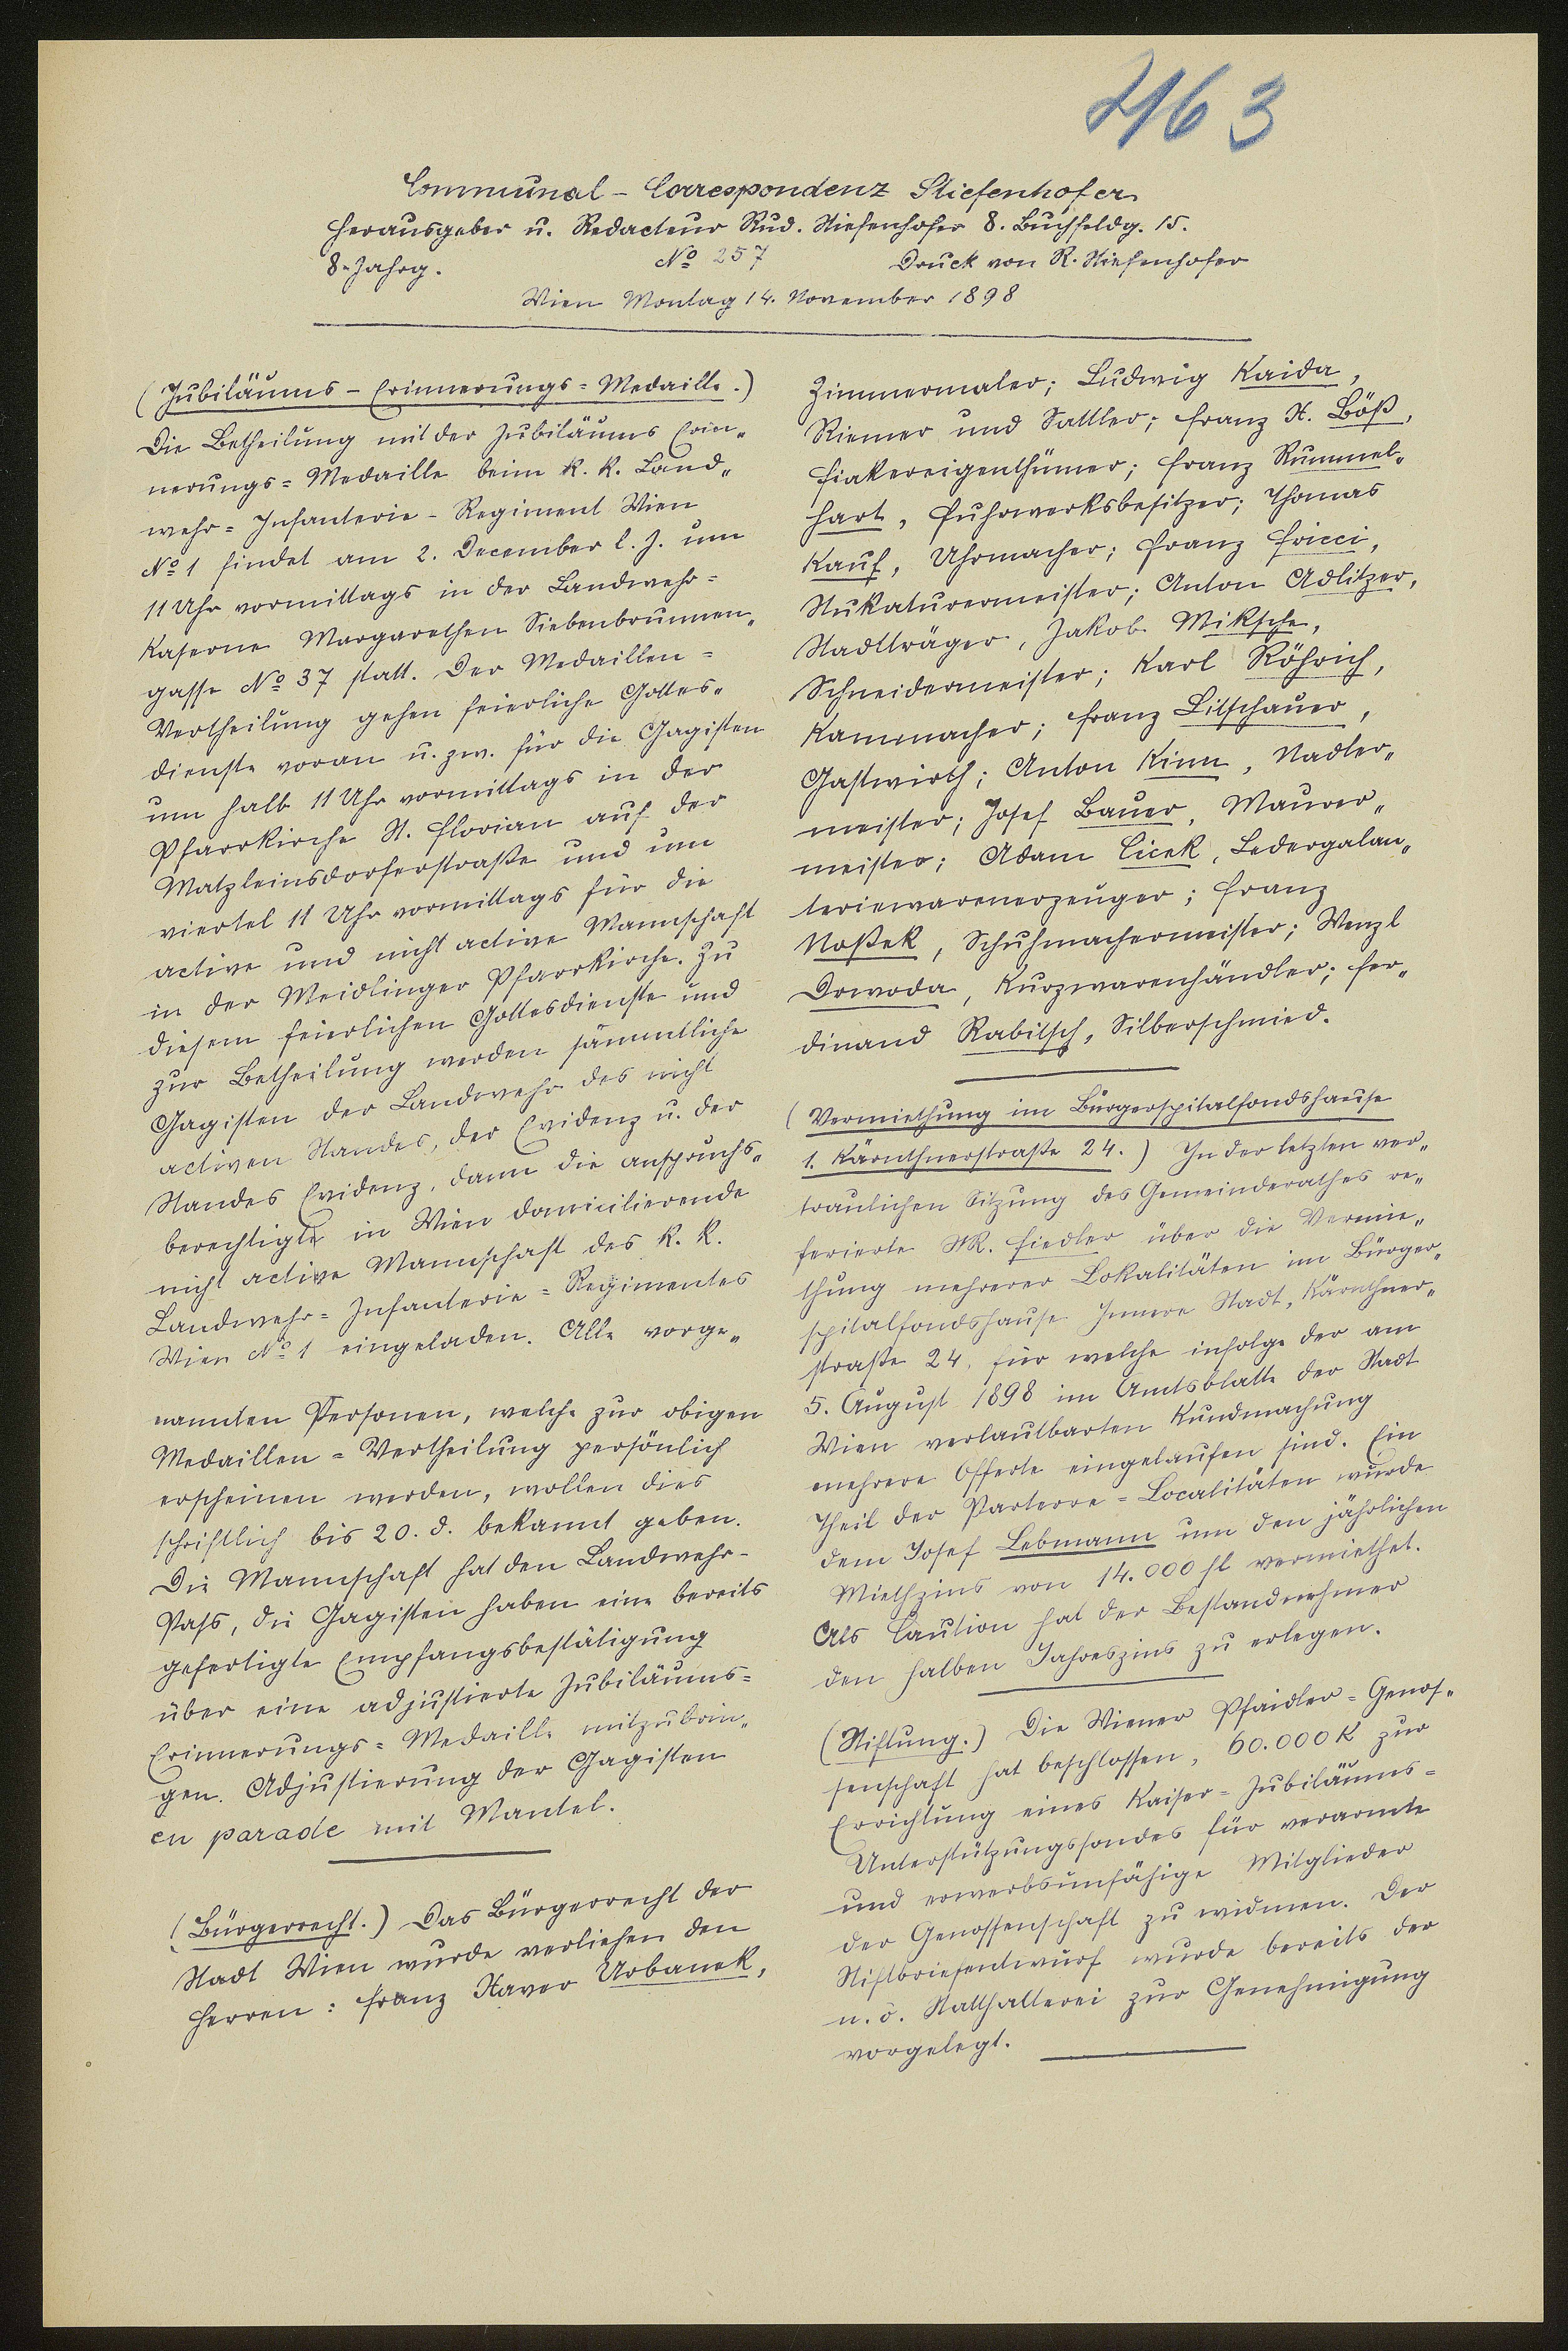 463
Communal-Correspondenz Stiefenhofer
Herausgeber u. Redacteur Rud. Stiefenhofer 8. Buchfeldg. 15.
8. Jahrg. No 257 Druck von R. Stiefenhofer
Wien Montag 14. November 1898
(Jubiläums-Erinnerungs=Medaille.)
Die Betheilung mit der Jubiläums Erin„
nerungs=Medaille beim k. k. Land„
wehr=Infanterie-Regiment Wien
No 1 findet am 2. December l. J. um
11 Uhr vormittags in der Landwehr=
Kaserne Margarethen Siebenbrunnen„
gasse No 37 statt. Der Medaillen=
Vertheilung gehen feierliche Gottes„
dienste voran u. zw. für die Gagisten
um halb 11 Uhr vormittags in der
Pfarrkirche St. Florian auf der
Matzleinsdorferstraße und um
viertel 11 Uhr vormittags für die
active und nicht active Mannschaft
in der Meidlinger Pfarrkirche. Zu
diesem feierlichen Gottesdienste und
zur Betheilung werden sämmtliche
Gagisten der Landwehr des nicht
activen Standes, der Evidenz u. der
Standes Evidenz, dann die anspruchs„
berechtigte in Wien domicilierende
nicht active Mannschaft des k. k.
Landwehr=Infanterie=Regimentes
Wien No 1 eingeladen. Alle vorge„
nannten Personen, welche zur obigen
Medaillen=Vertheilung persönlich
erscheinen werden, wollen dies
schriftlich bis 20. d. bekannt geben.
Die Mannschaft hat den Landwehr-
Pass, die Gagisten haben eine bereits
gefertigte Empfangsbestätigung
über eine adjustierte Jubiläums=
Erinnerungs=Medaille mitzubrin„
gen. Adjustierung der Gagisten
en parade mit Mantel.
(Bürgerrecht.) Das Bürgerrecht der
Stadt Wien wurde verliehen den
Herren: Franz Xaver Urbanek,
Zimmermaler; Ludwig Kaida,
Riemer und Sattler; Franz X. Böß,
Fiakereigenthümer; Franz Rummel„
hart, Fuhrwerksbesitzer; Thomas
Kauf, Uhrmacher; Franz Fricci,
Stukaturermeister; Anton Adlitzer,
Stadtträger, Jakob Miksche,
Schneidermeister; Karl Röhrich,
Kammacher; Franz Litschauer,
Gastwirth; Anton Kinn, Nadler„
meister; Josef Bauer, Maurer„
meister; Adam Cicek, Ledergalan„
teriewarenerzeuger; Franz
Noßek, Schuhmachermeister; Wenzl
Drwoda, Kurzwarenhändler; Fer„
dinand Rabitsch, Silberschmied.
(Vermiethung im Bürgerspitalfondshause
1. Kärnthnerstraße 24.) In der letzten ver„
traulichen Sitzung des Gemeinderathes re„
ferierte StR. Fiedler über die Vermie„
thung mehrerer Lokalitäten im Bürger„
spitalfondshause Innere Stadt, Kärnthner„
straße 24, für welche infolge der am
5. August 1898 im Amtsblatte der Stadt
Wien verlautbarten Kundmachung
mehrere Offerte eingelaufen sind. Ein
Theil der Parterre=Localitäten wurde
dem Josef Lebmann um den jährlichen
Miethzins von 14.000 fl vermiethet.
Als Caution hat der Bestandnehmer
den halben Jahreszins zu erlegen.
(Stiftung.) Die Wiener Pfaidler=Genos„
senschaft hat beschlossen, 60.000 K zur
Errichtung eines Kaiser=Jubiläums=
Unterstützungsfondes für verarmte
und erwerbsunfähige Mitglieder
der Genossenschaft zu widmen. Der
Stiftbriefentwurf wurde bereits der
n. ö. Statthalterei zur Genehmigung
vorgelegt.